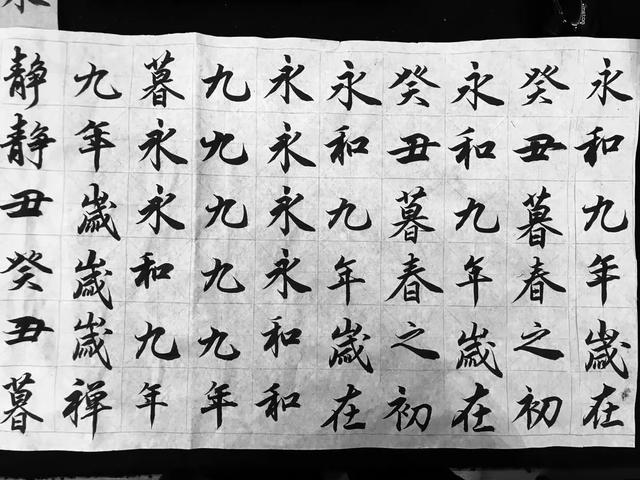 永和九年歲在
癸丑暮春之初
永和九年歲在
癸丑暮春之初
永和九年歲在
永永永永和和
九九九九九年
暮永永和九年
九年歲歲歲禅
静静丑癸丑暮